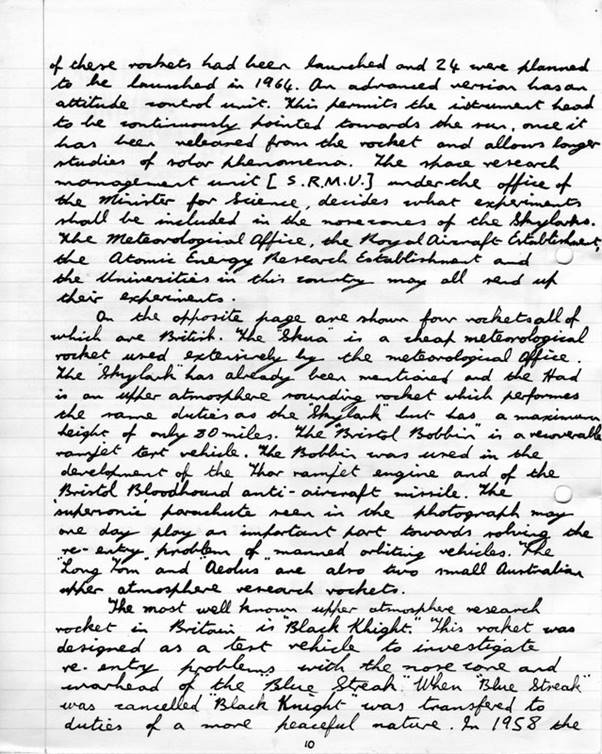 of these rockets had been launched and 24 were planned
to be launched in 1964. An advanced version has an
attitude control unit. This permits the intrument head
to be continuously pointed towards the sun, once it
has been released from the rocket and allows longer
studies of solar phenomena. The space research
management unit [S.R.M.U.] under the office of
the Minister for Science, decides what experiments
shall be included in the nosecones of the Skylarks.
The Meteorological Office, the Royal Aircraft Establishment,
the Atomic Energy Research Establishment and
the Universities in this country may all send up
their experiments.
On the opposite page are shown four rockets all of
which are British. The "Skua" is a cheap meteorological
rocket used extensively by the meteorological Office.
The "Skylark" has already been mentioned and the Had
is an upper atmosphere sounding rocket which performes
the same duties as the "Skylark" but has a maximum
height of only 80 miles. The "Bristol Bobbin" is a recoverable
ramjet test vehicle. The Bobbin was used in the
development of the Thor ramjet engine and of the
Bristol Bloodhound anti-aircraft missile. The
supersonic parachute seen in the photograph may
one day play an important part towards solving the
re-entry problem of manned orbiting vehicles. The
"Long Tom" and "Aeolus" are also two small Australian
upper atmosphere research rockets.
The most well known upper atmosphere research
rocket in Britain is "Black Knight." This rocket was
designed as a test vehicle to investigate
re-entry problems with the nose cone and
warhead of the "Blue Streak". When "Blue Streak"
was cancelled "Black Knight" was transfered to
duties of a more peaceful nature. In 1958 the
10